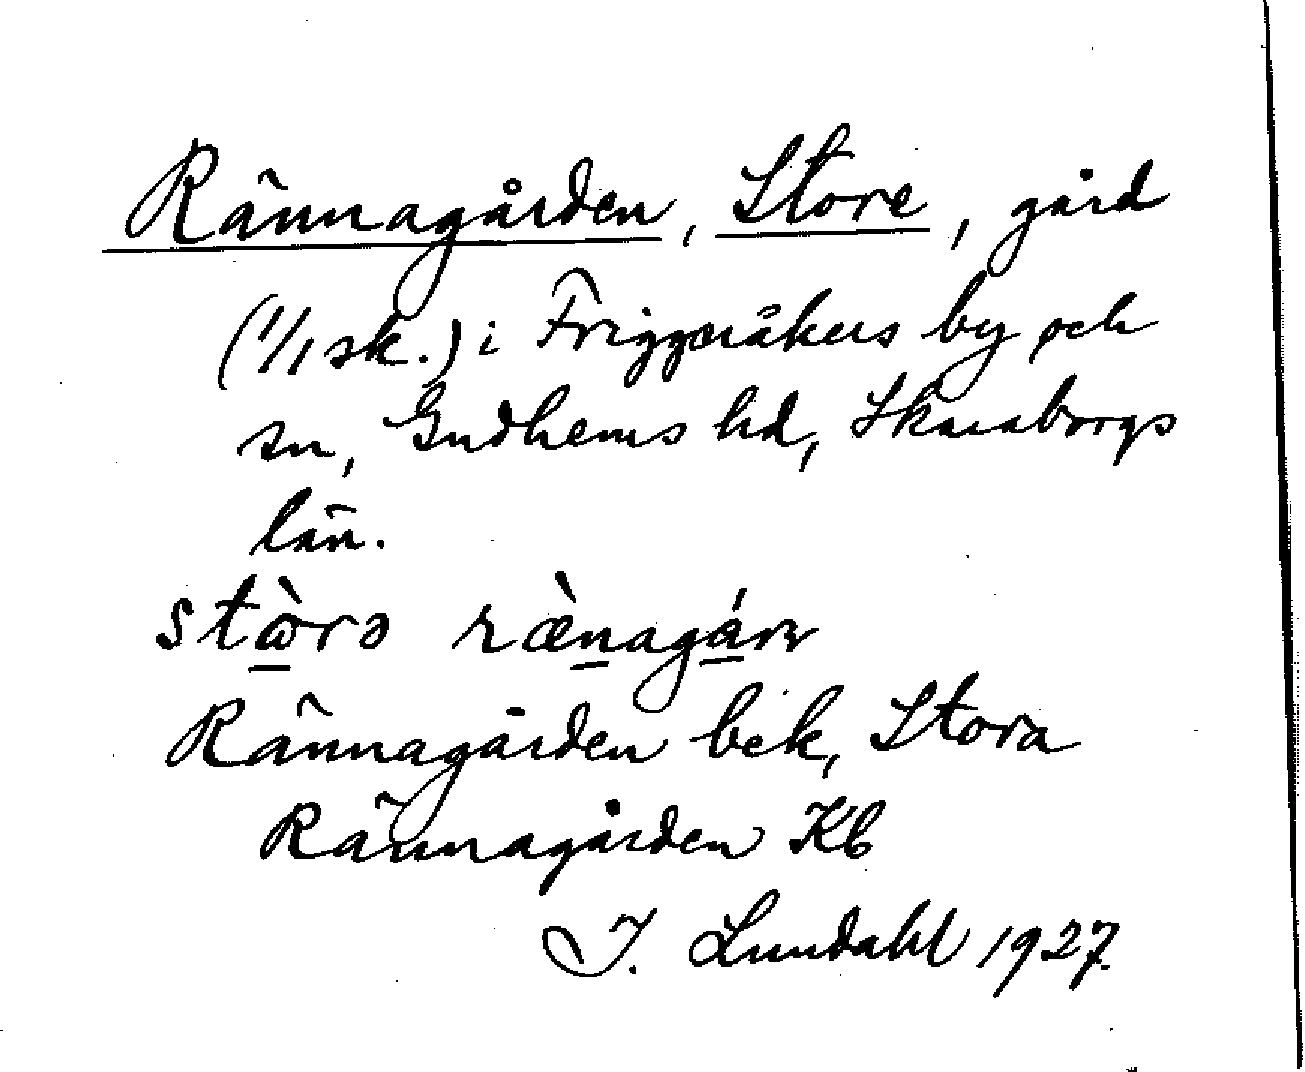 Rännagården, Store, gård
(1/1 sk.) i Friggeråkers by och
sn, Gudhems hd, Skaraborgs
län.
stɷ̀rə ræ̀nagárn
Rännagården bek, Stora
Rännagården Kb
I. Lundahl 1927.